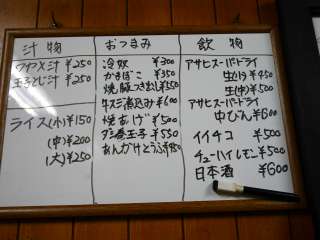 汁物
ワカメ汁 ¥250
玉子とじ汁 ¥250
ライス(小) ¥150
(中) ¥200
(大) ¥250
おつまみ
冷奴 ¥300
かまぼこ ¥350
焼豚つき出し ¥550
牛スジ煮込み ¥600
焼あげ ¥500
ダシ巻玉子 ¥550
あんかけとうふ
飲物
アサヒスーパードライ
生(小) ¥450
生(中) ¥500
アサヒスーパードライ
中びん ¥600
イイチコ ¥500
チューハイレモン ¥500
日本酒 ¥600